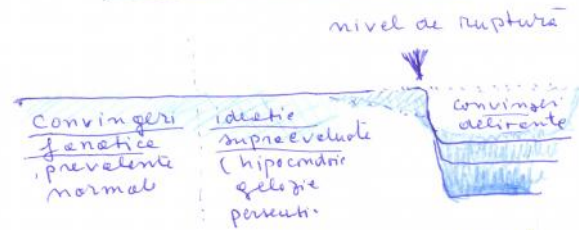 nivel de ruptură
convingeri
fanatice
, prevalente
normale
ideație
supraevaluate
( hipocondrie
gelozie
persecuti.
convingeri
delirante